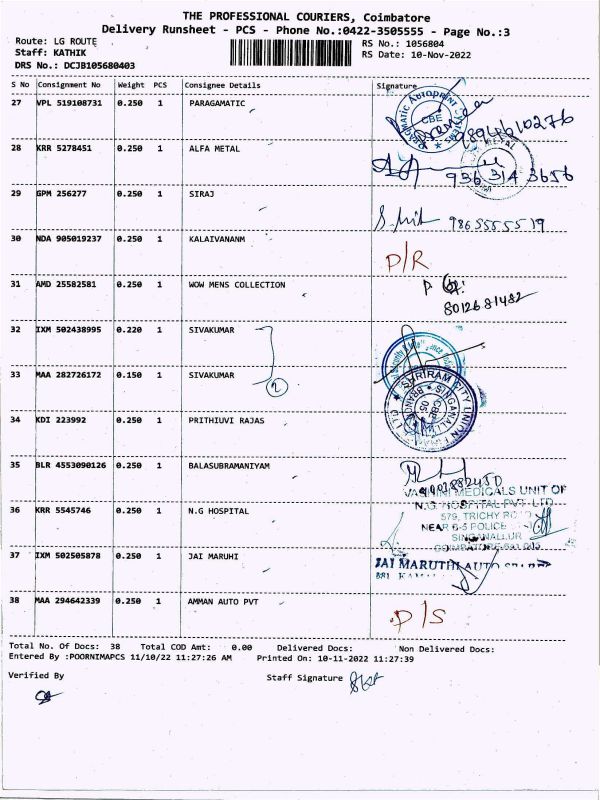 THE PROFESSIONAL COURIERS, Coimbatore
Delivery Runsheet - PCS - Phone No.:0422-3505555 - Page No.:3
Route: LG ROUTE
RS No.: 1056804
Staff: KATHIK
RS Date: 10-Nov-2022
DRS No.: DCJB105680403
S No Consignment No Weight PCS Consignee Details Signature
27 VPL 519108731 0.250 1 PARAGAMATIC
28 KRR 5278451 0.250 1 ALFA METAL
936 314 3656
29 GPM 256277 0.250 1 SIRAJ
30 NDA 905019237 0.250 1 KALAIVANANM
D/R
31 AMD 25582581 0.250 1 WOW MENS COLLECTION
8012681482
32 IXM 502438995 0.220 1 SIVAKUMAR
33 MAA 282726172 0.150 1 SIVAKUMAR
2
SHRIRAM CITY UNION
34 KDI 223992 0.250 1 PRITHIUVI RAJAS
35 BLR 4553090126 0.250 1 BALASUBRAMANIYAM
36 KRR 5545746 0.250 1 N.G HOSPITAL
MEDICALS UNIT OF
N.G. HOSPITAL PVT LTD
579, TRICHY
NEAR POLICE
SINGANALLUR
37 IXM 502505878 0.250 1 JAI MARUHI
JAI MARUTHI AUTO
38 MAA 294642339 0.250 1 AMMAN AUTO PVT
D/S
Total No. Of Docs: 38 Total COD Amt: 0.00 Delivered Docs: Non Delivered Docs:
Entered By :POORNIMAPCS 11/10/22 11:27:26 AM Printed On: 10-11-2022 11:27:39
Verified By
Staff Signature